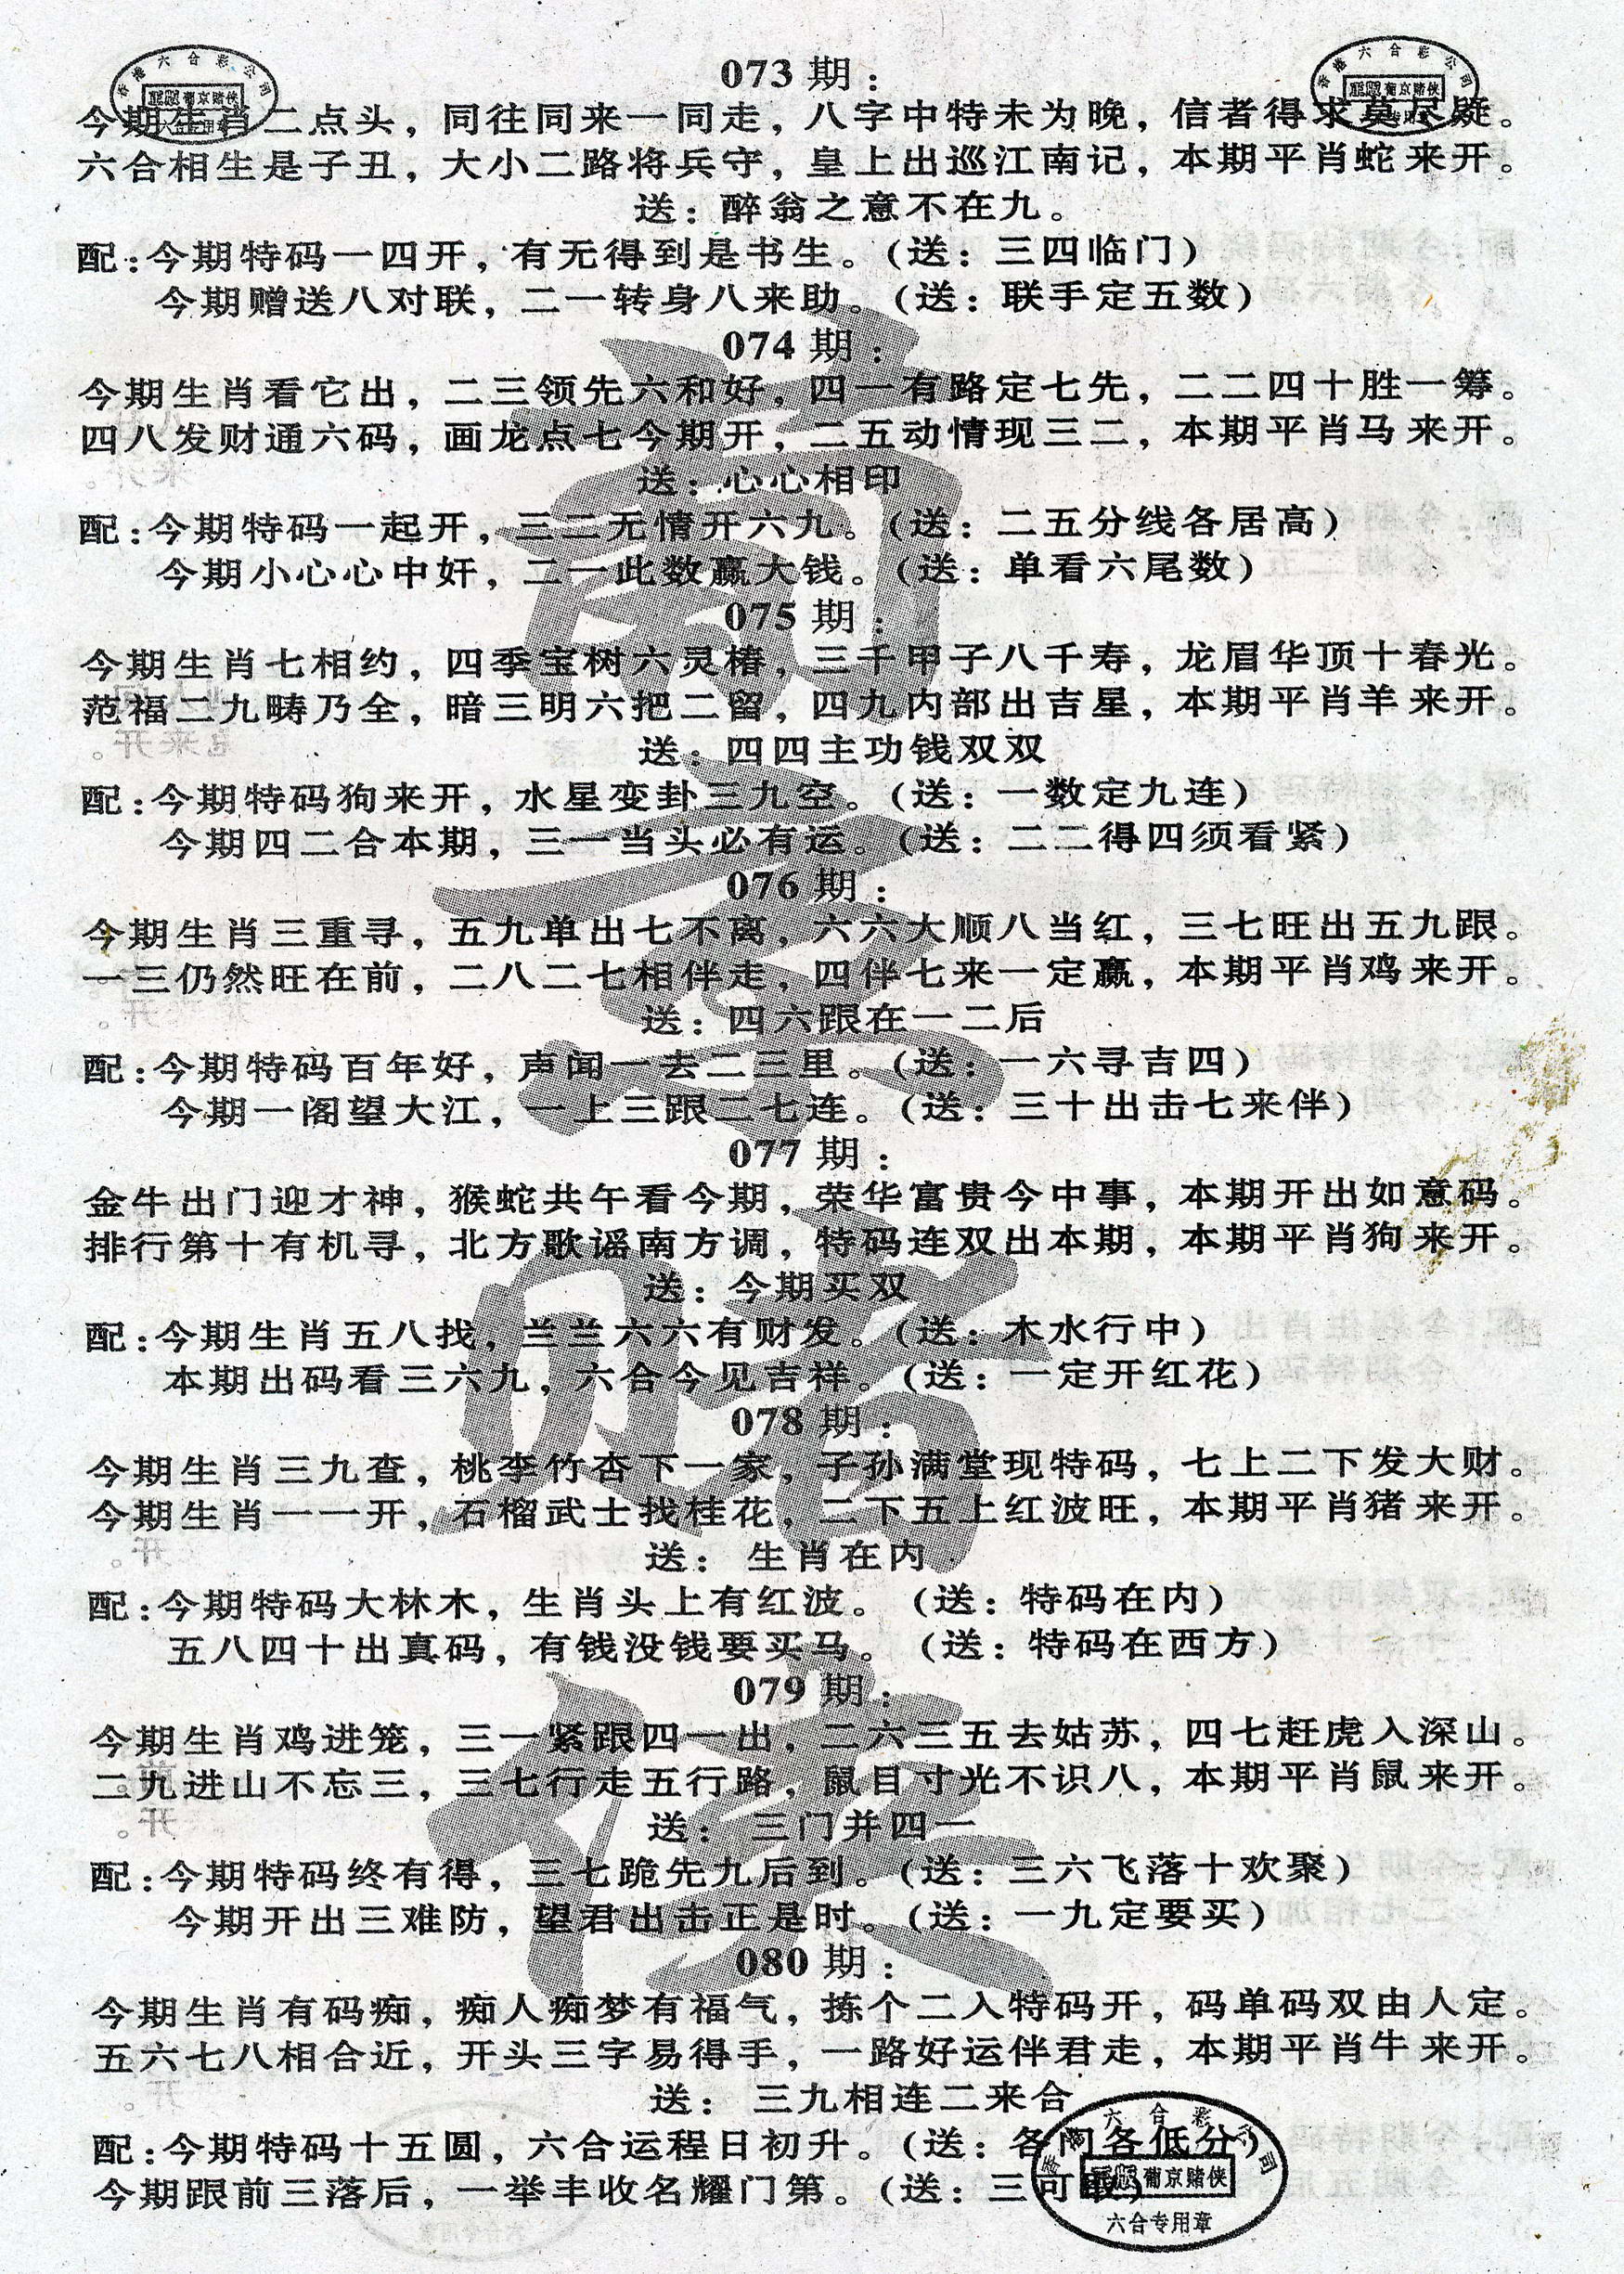 073期：
今期生肖二点头，同往同来一同走，八字中特未为晚，信者得求莫尽疑。
六合相生是子丑，大小二路将兵守，皇上出巡江南记，本期平肖蛇来开。
送：醉翁之意不在九。
配：今期特码一四开，有无得到是书生。（送：三四临门）
今期赠送八对联，二一转身八来助。（送：联手定五数）
074期：
今期生肖看它出，二三领先六和好，四一有路定七先，二二四十胜一筹。
四八发财通六码，画龙点七今期开，二五动情现三二，本期平肖马来开。
送：心心相印
配：今期特码一起开，三二无情开六九。（送：二五分线各居高）
今期小心心中奸，二一此数赢大钱。（送：单看六尾数）
075期：
今期生肖七相约，四季宝树六灵椿，三千甲子八千寿，龙眉华顶十春光。
范福二九畴乃全，暗三明六把二留，四九内部出吉星，本期平肖羊来开。
送：四四主功钱双双
配：今期特码狗来开，水星变卦三九空。（送：一数定九连）
今期四二合本期，三一当头必有运。（送：二二得四须看紧）
076期：
今期生肖三重寻，五九单出七不离，六六大顺八当红，三七旺出五九跟。
一三仍然旺在前，二八二七相伴走，四伴七来一定赢，本期平肖鸡来开。
送：四六跟在一二后
配：今期特码百年好，声闻一去二三里。（送：一六寻吉四）
今期一阁望大江，一上三跟二七连。（送：三十出击七来伴）
077期：
金牛出门迎才神，猴蛇共午看今期，荣华富贵今中事，本期开出如意码。
排行第十有机寻，北方歌谣南方调，特码连双出本期，本期平肖狗来开。
送：今期买双
配：今期生肖五八找，兰兰六六有财发。（送：木水行中）
本期出码看三六九，六合今见吉祥。（送：一定开红花）
078期：
今期生肖三九查，桃李竹杏下一家，子孙满堂现特码，七上二下发大财。
今期生肖一一开，石榴武士找桂花，二下五上红波旺，本期平肖猪来开。
送：生肖在内
配：今期特码大林木，生肖头上有红波。（送：特码在内）
五八四十出真码，有钱没钱要买马。（送：特码在西方）
079期：
今期生肖鸡进笼，三一紧跟四一出，二六三五去姑苏，四七赶虎入深山。
二九进山不忘三，三七行走五行路，鼠目寸光不识八，本期平肖鼠来开。
送：三门并四一
配：今期特码终有得，三七跪先九后到。（送：三六飞落十欢聚）
今期开出三难防，望君出击正是时。（送：一九定要买）
080期：
今期生肖有码痴，痴人痴梦有福气，拣个二入特码开，码单码双由人定。
五六七八相合近，开头三字易得手，一路好运伴君走，本期平肖牛来开。
送：三九相连二来合
配：今期特码十五圆，六合运程日初升。（送：各门各低分）
今期跟前三落后，一举丰收名耀门第。（送：三可取）
香港六合彩公司
正版葡京赌侠
六合专用章